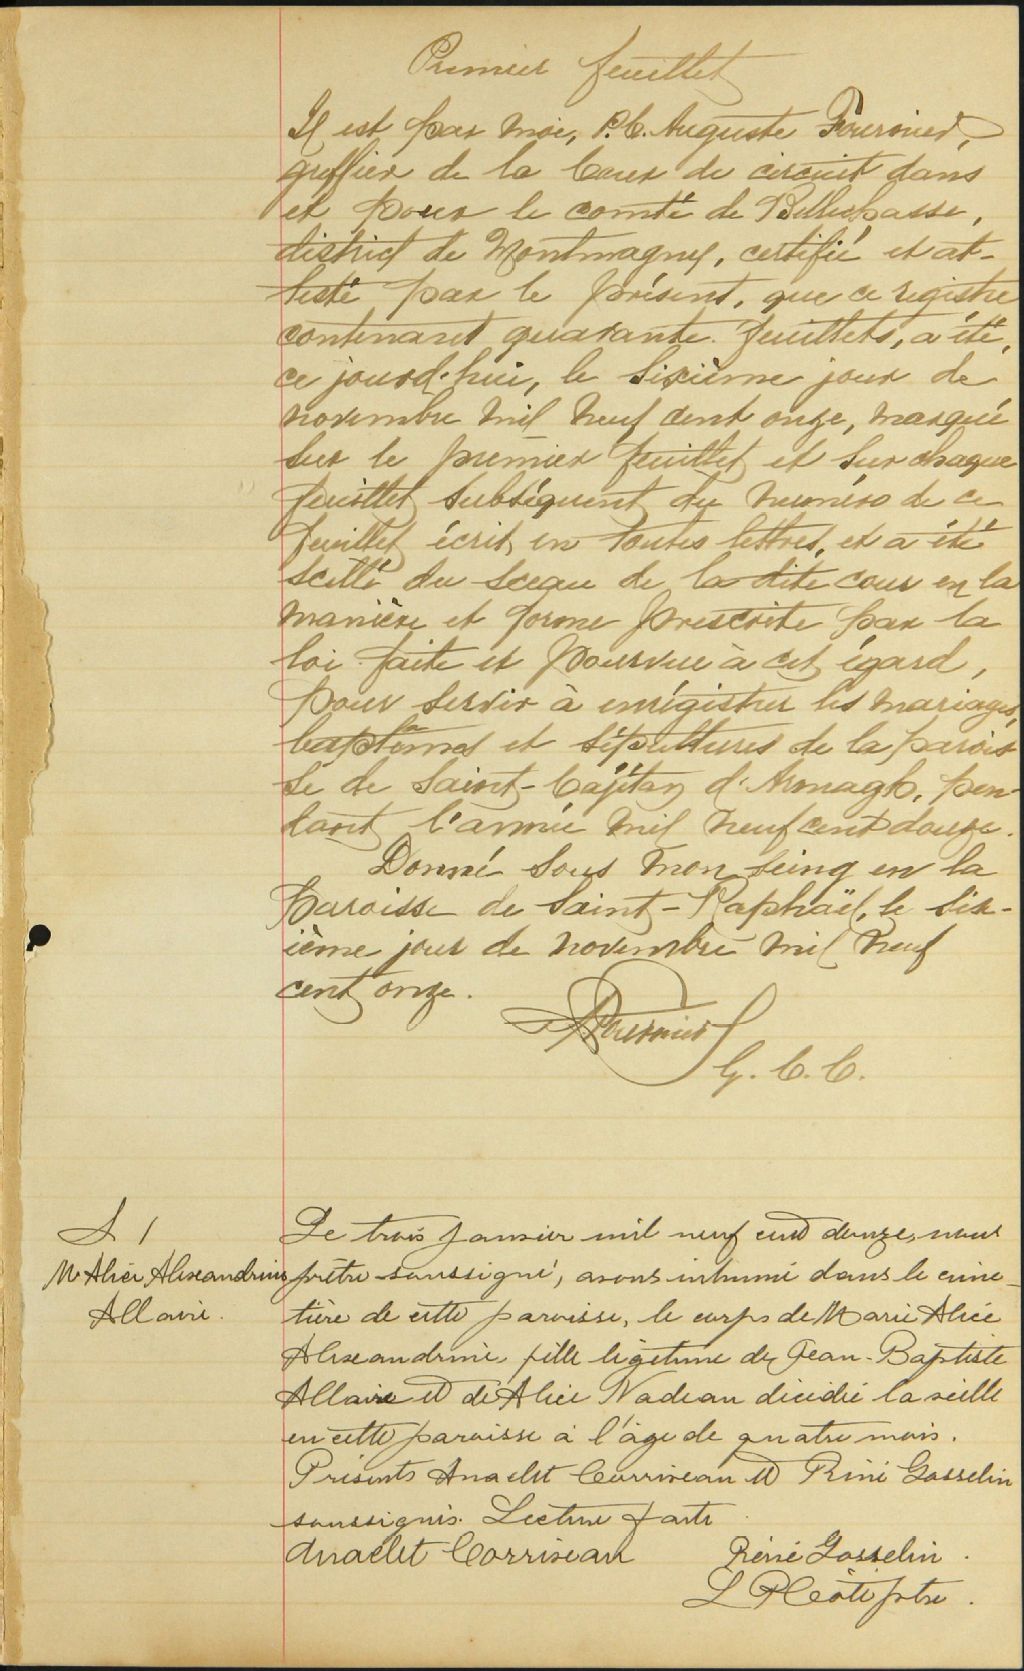 Premier feuillet
Il est par moi, P. C. Auguste Fournier,
greffier de la Cour de circuit dans
et pour le comté de Bellechasse,
district de Montmagny, certifié et at-
testé par le présent, que ce registre
contenant quarante feuillets, a été,
ce jourd'hui, le sixième jour de
novembre mil neuf cent onze, marqué
sur le premier feuillet et sur chaque
feuillet subséquent du numéro de ce
feuillet écrit en toutes lettres, et a été
scellé du sceau de la dite cour en la
manière et forme prescrite par la
loi faite et pourvue à cet égard,
pour servir à enrégistrer les mariages,
baptêmes et sépultures de la parois
se de Saint-Cajétan d'Armagh, pen-
dant l'année mil neuf cent douze.
Donné sous mon seing en la
paroisse de Saint-Raphaël, le six-
ième jour de novembre mil neuf
cent onze.
Fournier
G. C. C.
S 1
M Alice Alexandrine
Allaire.
Le trois janvier mil neuf cent douze, nous
prêtre soussigné, avons inhumé dans le cime-
tière de cette paroisse, le corps de Marie Alice
Alexandrine, fille légitime de Jean-Baptiste
Allaire et de Alice Nadeau décédée la veille
en cette paroisse à l'âge de quatre mois.
Présents Anaclet Corriveau et Réné Gosselin
soussignés. Lecture faite
Anaclet Corriveau Réné Gosselin.
L P Côté ptre.